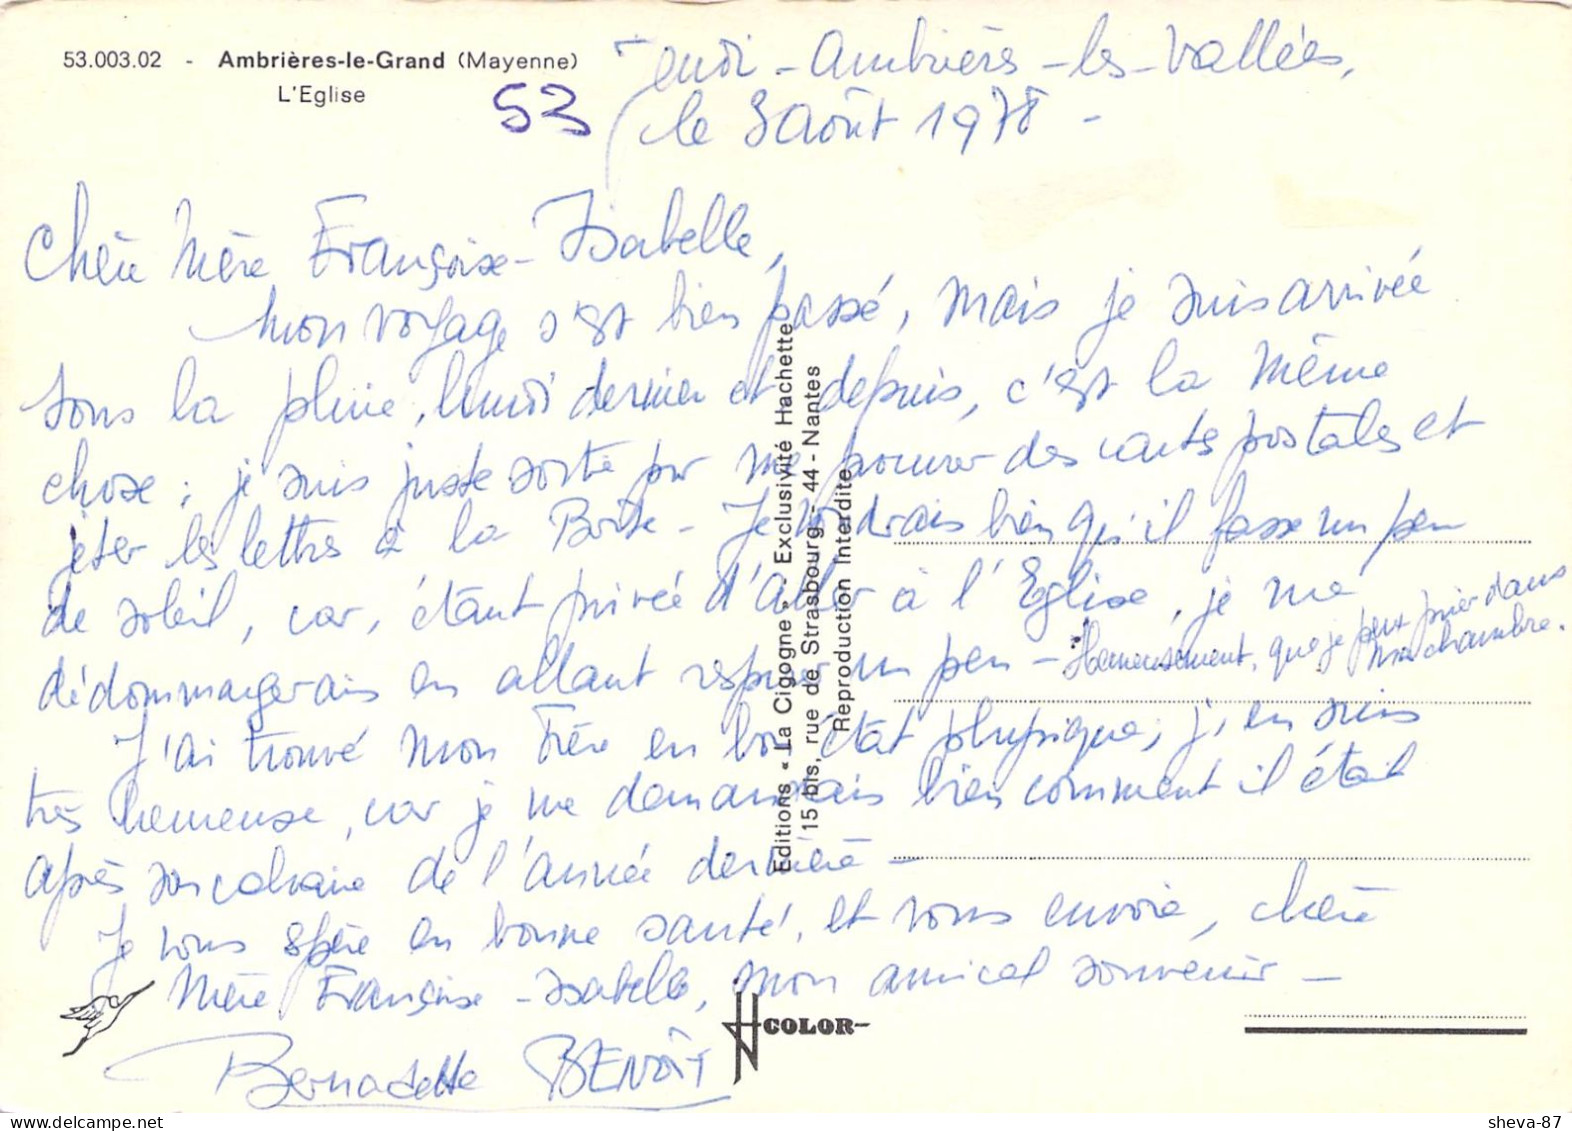 53.003.02 - Ambrières-le-Grand (Mayenne)
L'Eglise
53
Jeudi - Ambrières-les-Vallées,
le 3 Août 1978 -
Chère Mère Françoise-Isabelle,
Mon voyage s'est bien passé, mais je suis arrivée
sous la pluie, lundi dernier et depuis, c'est la même
chose ; je suis juste sortie pr me procurer des cartes postales et
jeter les lettres à la Boîte - Je voudrais bien qu'il fasse un peu
de soleil, car, étant privée d'aller à l'Eglise, je me
dédommagerais en allant respirer un peu - Heureusement, que je peux prier dans
ma chambre.
J'ai trouvé mon Frère en bon état physique, j'en suis
très heureuse, car je me demandais bien comment il était
après son calvaire de l'année dernière -
Je vous espère en bonne santé, et vous envoie, chère
Mère Françoise-Isabelle, mon amical souvenir -
Bernadette BENOÎT
Editions « La Cigogne » - Exclusivité Hachette
15 bis, rue de Strasbourg - 44 - Nantes
Reproduction Interdite
COLOR
sheva-87